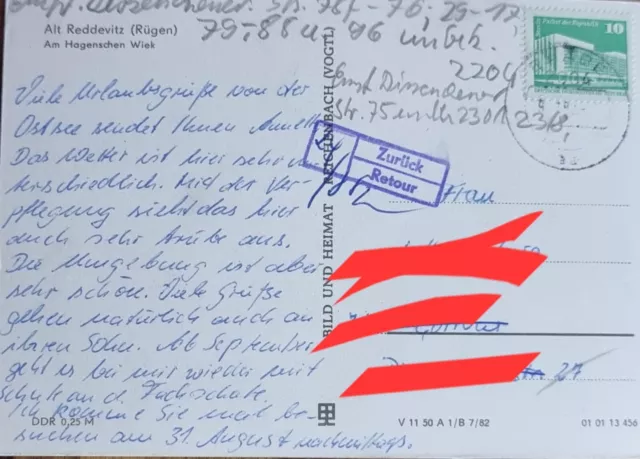 Empf. Str. 78, - 76, 29-17
79,88 u. 96 unbek.
2204
Str. 75 2301 23/8
Alt Reddevitz (Rügen)
Am Hagenschen Wiek
10
Palast der Republik
Viele Urlaubsgrüße von der
Ostsee sendet Ihnen
Das Wetter ist hier sehr un-
terschiedlich. Mit der Ver-
pflegung sieht das hier
auch sehr trübe aus.
Die Umgebung ist aber
sehr schön. Viele Grüße
gehen natürlich auch an
ihren Sohn. Ab September
geht es bei mir wieder mit
Schule an d. Fachschule.
Ich komme Sie mal be-
suchen am 31. August nachmittags.
DDR 0,25 M
BILD UND HEIMAT REICHENBACH (VOGTL)
Zurück
Retour
Frau
27
V 11 50 A 1/B 7/82
01 01 13 456